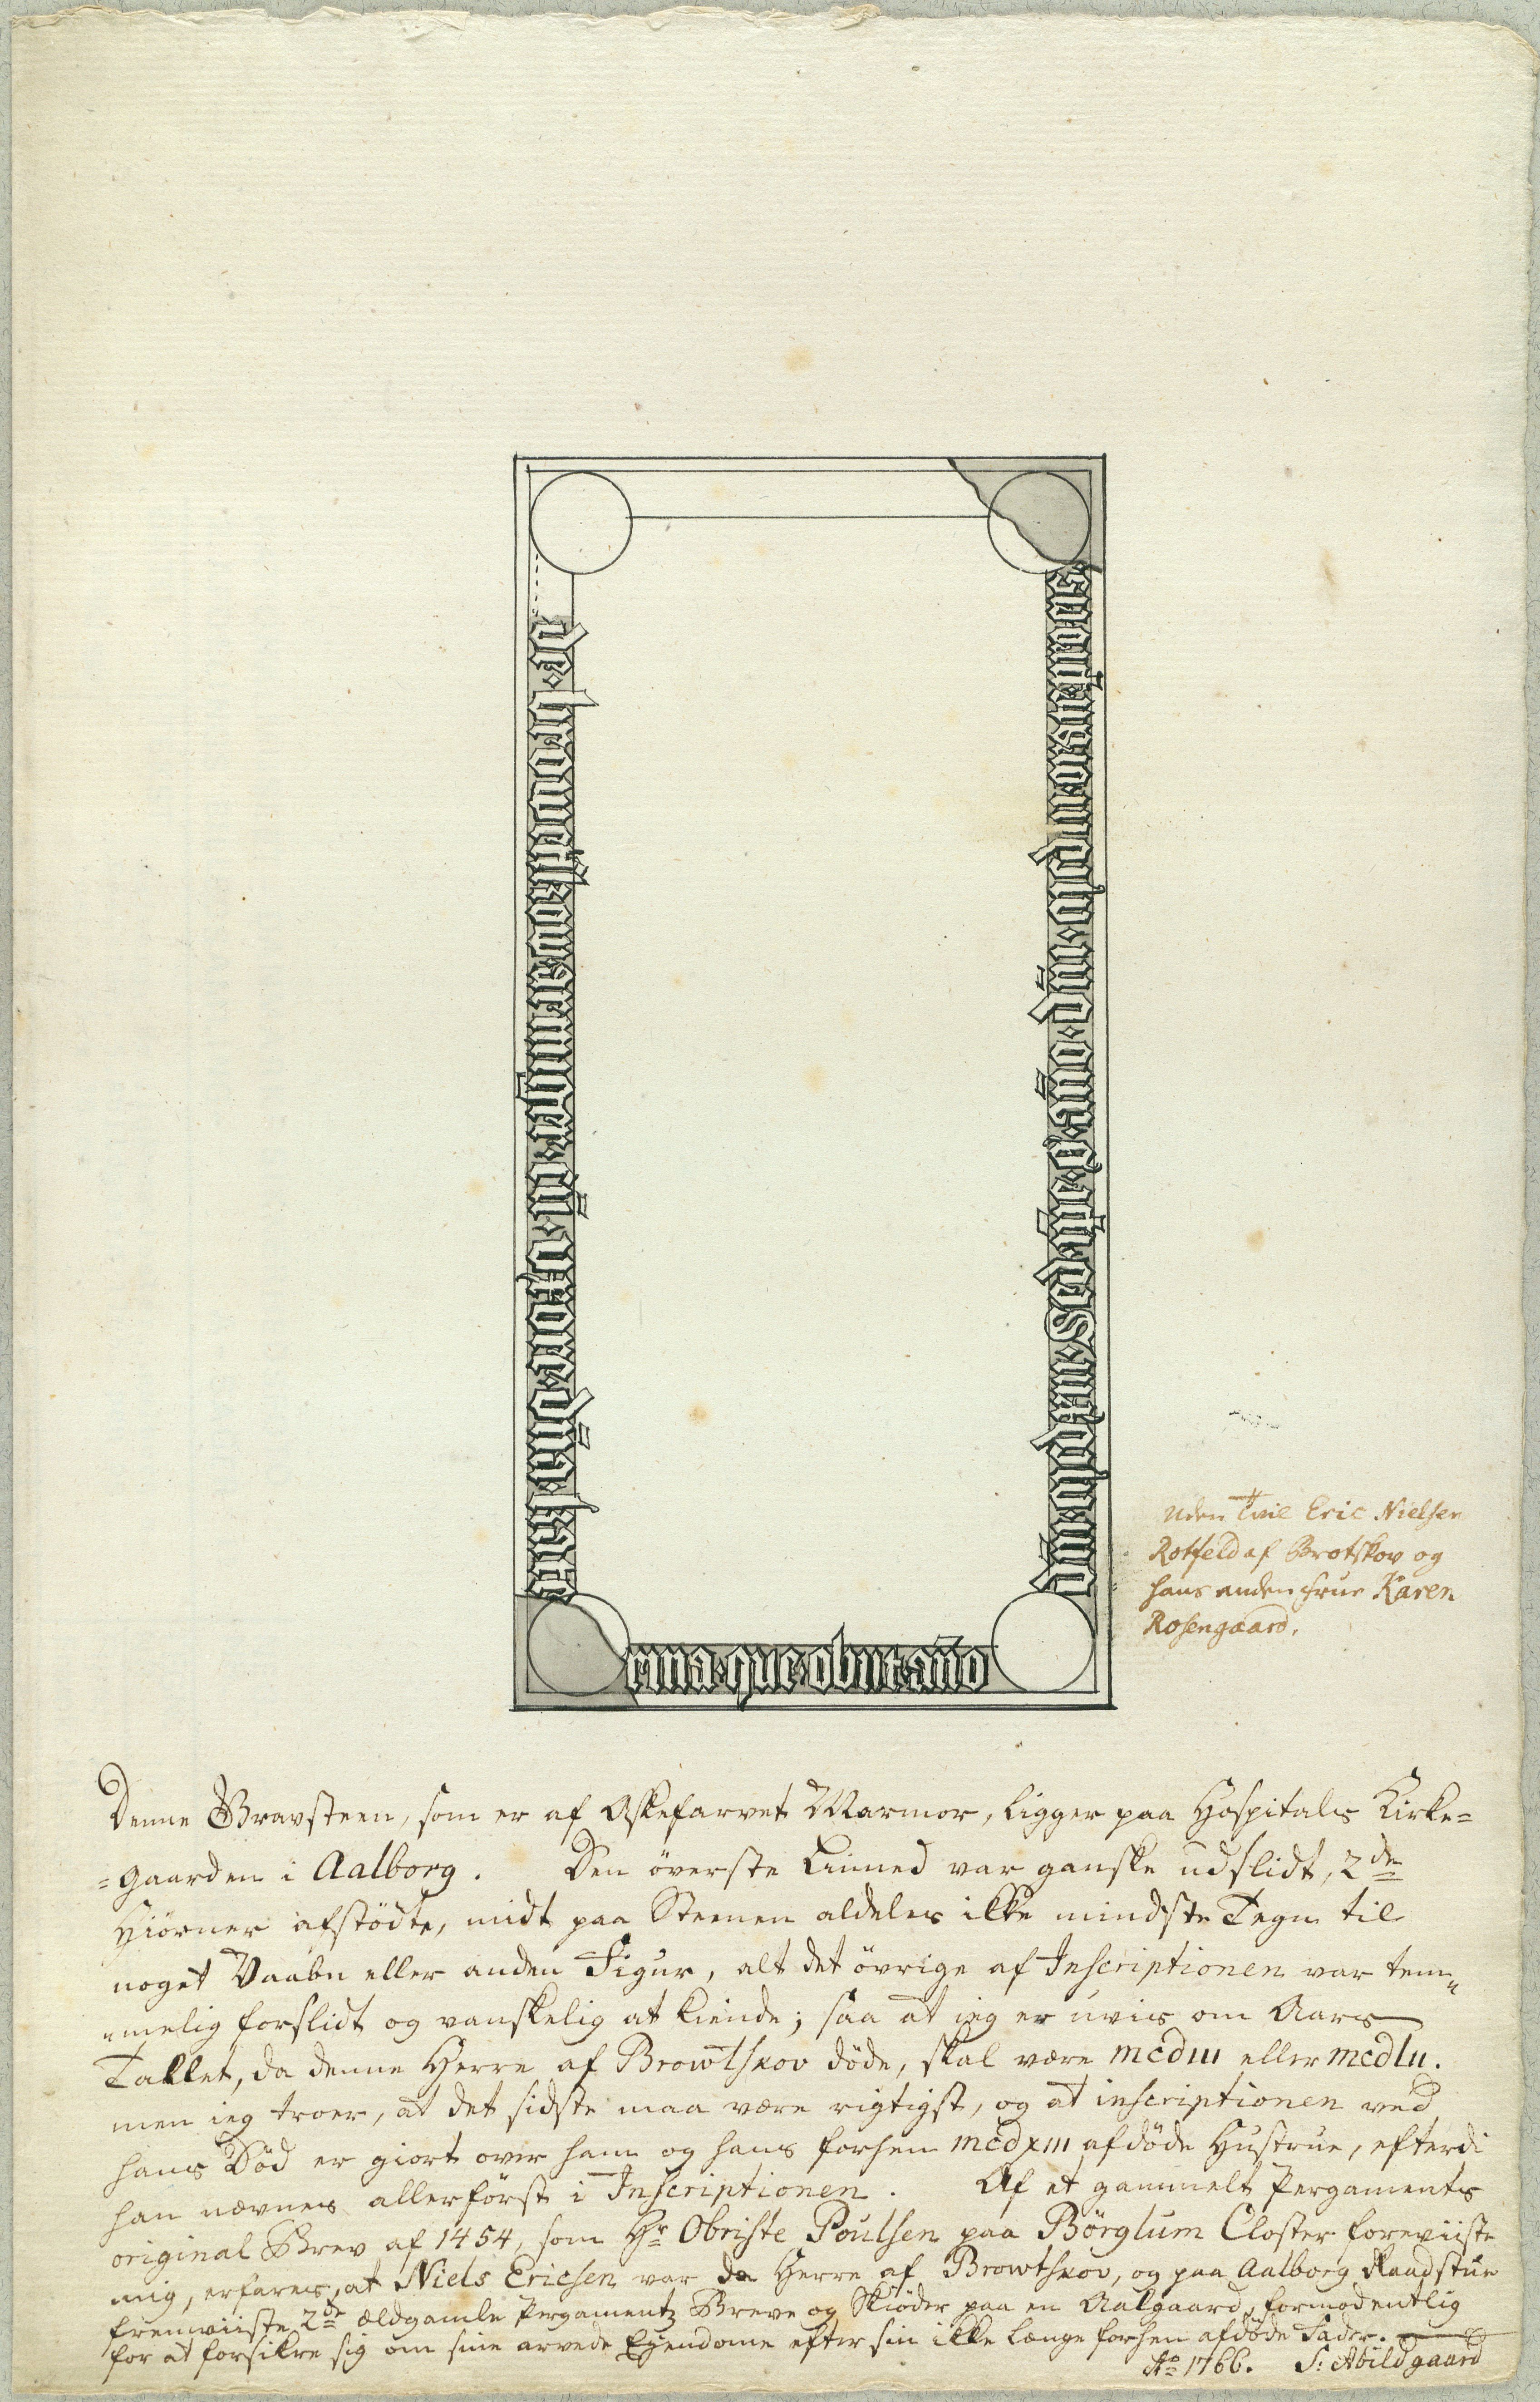 rina · que · obiit · año
Uden Tvil Eric Nielsen
Rotfeld af Brotskov og
hans anden Frue Karen
Rosengaard.
Denne Gravsteen, som er af Askefarvet Marmor, ligger paa Hospitals Kirke=
=gaarden i Aalborg. Den överste Linned var ganske udslidt, 2de
Hiörner afstödte, midt paa Steenen aldeles ikke mindste Tegn til
noget Vaaben eller anden Figur, alt det övrige af Inscriptionen var tem„
„melig forslidt og vanskelig at kiende; saa at jeg er uvis om Aars
Tallet, da denne Herre af Browtskov döde, skal være mcdiii eller mcdlii.
men ieg troer, at det sidste maa være rigtigst, og at inscriptionen ved
hans Död er giort over ham og hans forhen mcdxiii afdöde Hustrue, efterdi
han nævnes allerförst i Inscriptionen. Af et gammelt Pergaments
original Brev af 1454, som Hr Obriste Poulsen paa Börglum Closter foreviiste
mig, erfares, at Niels Ericsen var da Herre af Browtskov, og paa Aalborg Raadstue
fremviiste 2de ældgamle Pergamentz Breve og Skiöder paa en Aalgaard, formodentlig
for at forsikre sig om sine arvede Ejendome efter sin ikke længe forhen afdöde Fader.
Ao 1766. S: Abildgaard